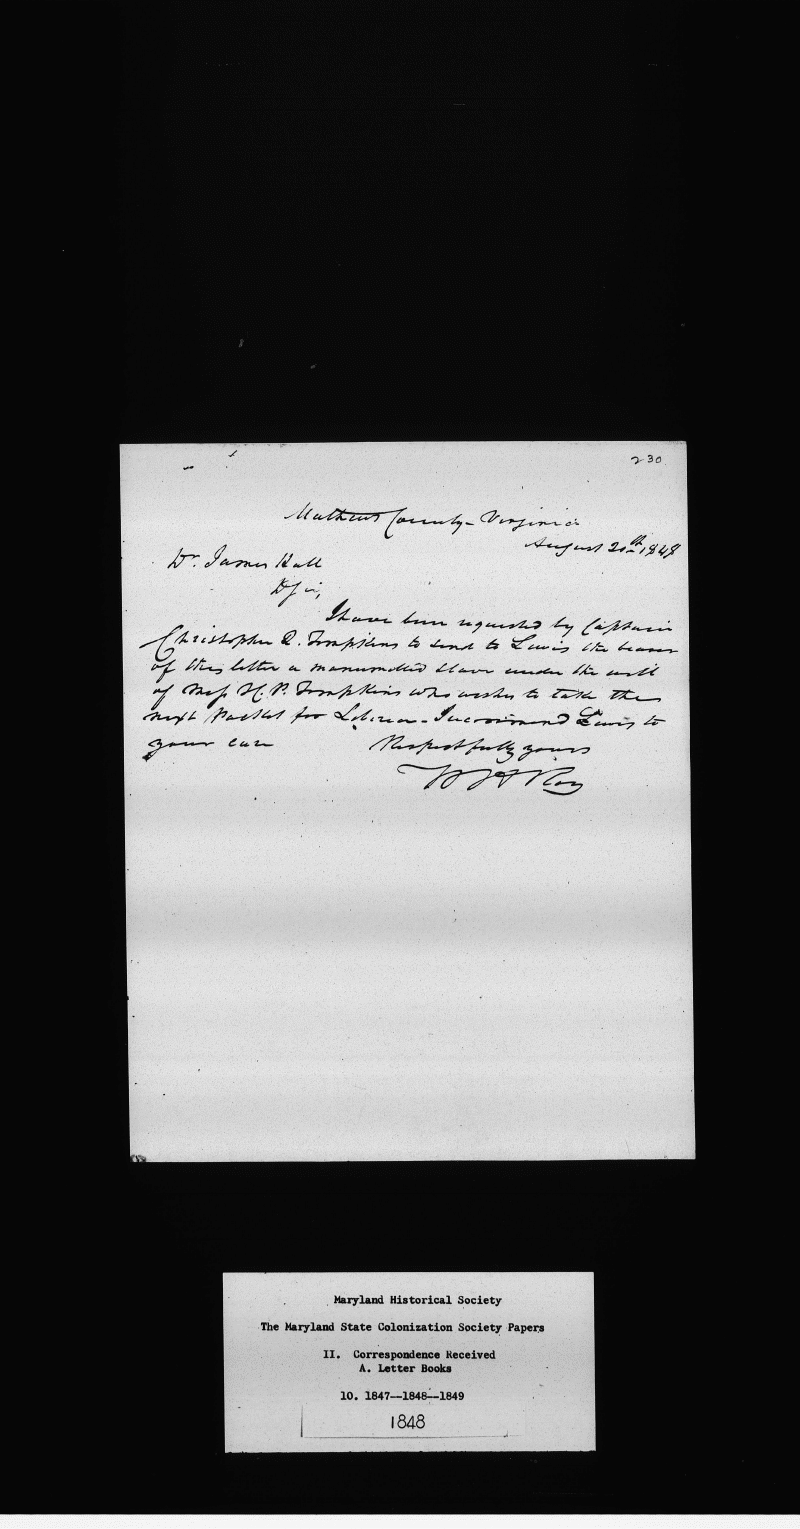 230
Mathews County - Virginia
August 20th 1848
Dr. James Hall
D Sir,
I have been requested by Captain
Christopher Q. Tompkins to send to Lewis the bearer
of this letter a manumitted slave under the will
of H. P. Tompkins who wishes to take the
next Packet for Liberia - I recommend Lewis to
your care
Respectfully yours
Maryland Historical Society
The Maryland State Colonization Society Papers
II. Correspondence Received
A. Letter Books
10. 1847--1848--1849
1848